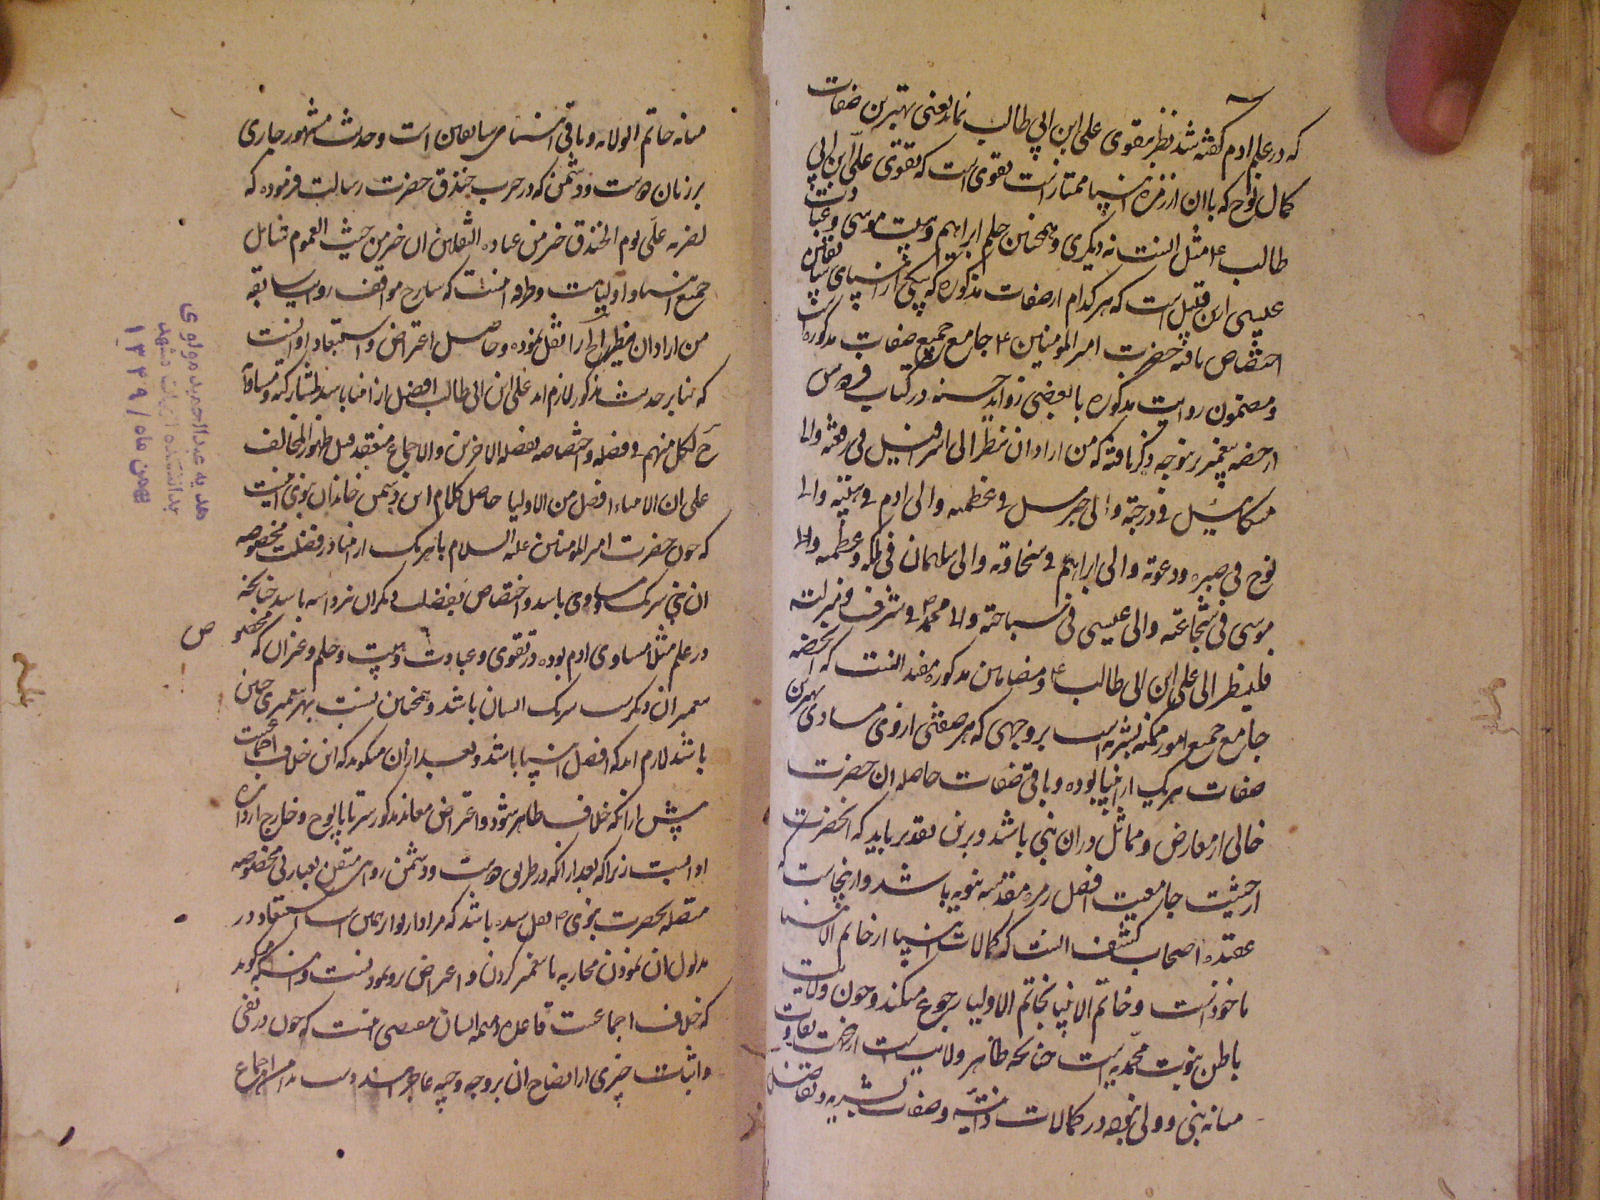 که در علم ادم گفته شد نظر بتقوی علی ابن ابی طالب نماید یعنی بهترین صفات
کمال نوح که باان از زمره انبیا ممتاز است تقوی است که تقوی علی ابن ابی
طالب ۴ مثل انست نه دیکری و همچنین حلم ابراهیم و هیبت موسی و عبادت
عیسی ازین قبیل است که هر کدام از صفات مذکوره که بیکی از انبیای سابقین
اختصاص یافته حضرت امیر المومنین ۴ جامع جمیع صفات مذکوره است
و مضمون روایت مذکوره با بعضی زواید حسنه در کتاب فردوس
از حضرت پیغمبر بر نوجه ذکر یافته که من اراد ان ینظر الی اسرافیل فی رفعته والی
میکائیل فی درجته والی جبرئیل فی عظمته والی ادم فی هیبته والی
نوح فی صبره ودعوته والی ابراهیم فی سخاوته والی سلیمان فی ملکه وعظمته والی
موسی فی شجاعته والی عیسی فی سیاحته والی محمد فی شرف و منزلته
فلینظر الی علی ابن ابی طالب ۴ و مضامین مذکوره مفید انست که انحضرت
جامع جمیع امور ممکنه بشریه است بر وجهی که هر صفتی از وی مساوی بهترین
صفات هر یک از انبیا بوده و باقی صفات حاصله ان حضرت
خالی از معارض و مماثل در ان نبی باشد و برین تقدیر باید که انحضرت
از حیثیت جامعیت افضل زمره مقدسه نبویه باشد و از اینجاست که
عقیده اصحاب کشف انست که کمالات انبیا از خاتم الانبیا
ماخوذ است و خاتم الانبیا بخاتم الاولیا رجوع میکند و چون ولایت
باطن نبوت محمدیه است چنانکه ظاهر ولایت است ازینجهت تفاوت
میانه نبی و ولی نبود در کمالات ذاتیه و صفات بشریه و تفاضل
میانه خاتم الولایه و باقی انبیای سابقین است و حدیث مشهور جاری
بر زبان دوست و دشمن که در حرب خندق حضرت رسالت فرموده که
لضربه علی یوم الخندق خیر من عباده الثقلین ان خیر من حیث العموم شامل
جمیع انبیا و اولیاست و طرفه انست که شارح مواقف روایت سابقه
من اراد ان ینظر الخ را نقل نموده و حاصل اعتراض و استبعاد او انست
که بنابر حدیث مذکور لازم اید علی ابن ابی طالب افضل از انبیا باشد لمشارکته و مساواته
ح لکل منهم فی فضله و اختصاصه بفضله الاخرین والاجماع منعقد قبل ظهور المخالف
علی ان الانبیاء افضل من الاولیا حاصل کلام این دشمن خاندان نبوی انست
که چون حضرت امیر المومنین علیه السلام با هر یک از انبیا در فضیلت مخصوصه
ان نبی شریک و مساوی باشد و اختصاص بفضیلت دیکران نیز داشته باشد چنانکه
در علم مثلا مساوی ادم بوده در تقوی و عبادت و هیبت و حلم و غیر ان که مخصوص
پیغمبران دیکرست شریک ایشان باشد و همچنین نسبت بهر پیغمبری چنین
باشد لازم اید که افضل انبیا باشد و بعد از ان میکوید که این خلاف اجماعیست
پیش از انکه خلاف ظاهر شود و اعتراض معاند مذکور سرتاپا پوچ و خارج از اداب
او انیست زیرا که بعد از انکه در طریق دوست و دشمن روایتی متقن بعبارتی مخصوصه
متصله بحضرت نبوی ۴ نقل شده باشد
مدلول ان نمودن محاربه با پیغمبر کردن و اعتراض بر و نمودنست و انکه میکوید
که خلاف اجماعست قاعده ایشان مقتضی انست که چون در نفی
و اثبات چیزی از ایضاح ان بر وجه وجیه عاجز شدند اجماع
ص
هدیه عبدالحمید مولوی
بدانشکده ادبیات مشهد
بهمن ماه / ۱۳۴۹